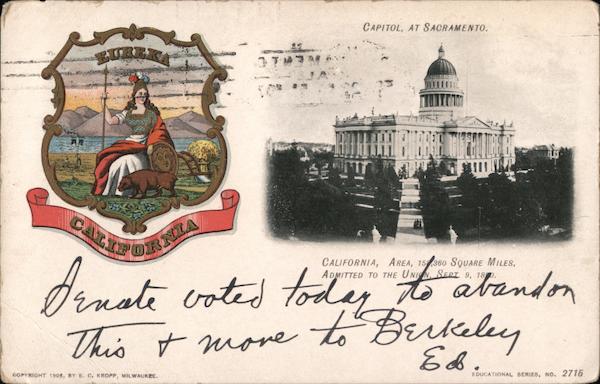 CAPITOL, AT SACRAMENTO.
EUREKA
CALIFORNIA
CALIFORNIA, AREA, 158,360 SQUARE MILES.
ADMITTED TO THE UNION, SEPT. 9, 1850.
Senate voted today to abandon
this & move to Berkeley
Ed.
COPYRIGHT 1905, BY E. C. KROPP, MILWAUKEE.
EDUCATIONAL SERIES, NO. 2716